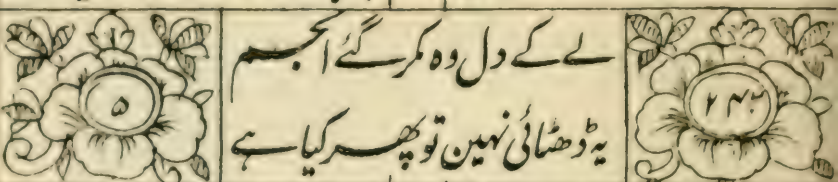 ۲۴۳
لے کے دل وہ مکر گئے انجم
یہ ڈھٹائی نہین تو پھر کیا ہے
۵